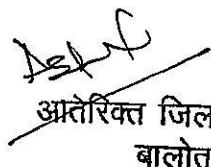 आतेरिक्त जिल
बालोत